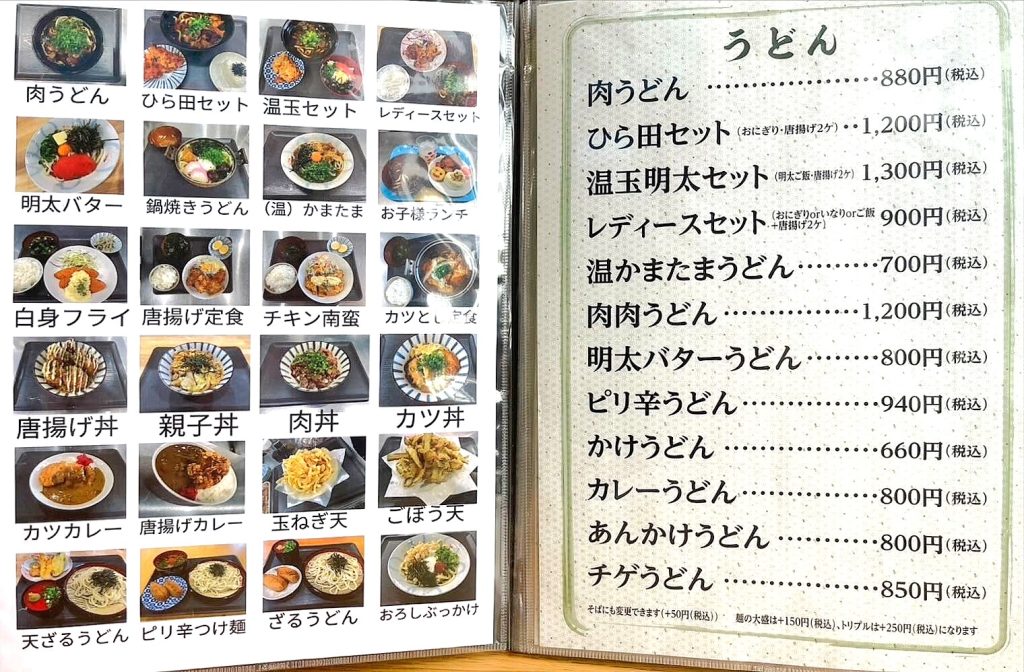 肉うどん
ひら田セット
温玉セット
レディースセット
明太バター
鍋焼きうどん
(温)かまたま
お子様ランチ
白身フライ
唐揚げ定食
チキン南蛮
カツとじ定食
唐揚げ丼
親子丼
肉丼
カツ丼
カツカレー
唐揚げカレー
玉ねぎ天
ごぼう天
天ざるうどん
ピリ辛つけ麺
ざるうどん
おろしぶっかけ
うどん
肉うどん ‥‥‥‥‥‥‥880円(税込)
ひら田セット(おにぎり・唐揚げ2ケ)‥1,200円(税込)
温玉明太セット(明太ご飯・唐揚げ2ケ) 1,300円(税込)
レディースセット(おにぎりorいなりorご飯+唐揚げ2ケ) 900円(税込)
温かまたまうどん‥‥‥‥700円(税込)
肉肉うどん‥‥‥‥‥‥1,200円(税込)
明太バターうどん‥‥‥‥800円(税込)
ピリ辛うどん‥‥‥‥‥‥940円(税込)
かけうどん‥‥‥‥‥‥‥660円(税込)
カレーうどん‥‥‥‥‥‥800円(税込)
あんかけうどん‥‥‥‥‥800円(税込)
チゲうどん‥‥‥‥‥‥‥850円(税込)
そばにも変更できます(+50円(税込)) 麺の大盛は+150円(税込)、トリプルは+250円(税込)になります